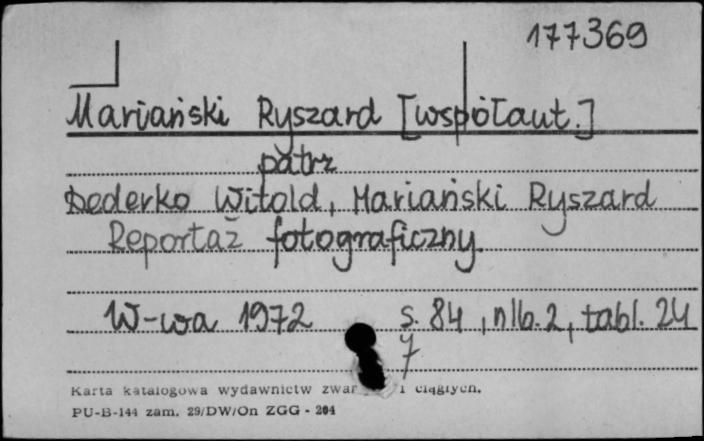 177369
Mariański Ryszard [współaut.]
patrz
Dederko Witold, Mariański Ryszard
Reportaż fotograficzny
W-wa 1972 s. 84, nlb. 2, tabl. 24
7
Karta katalogowa wydawnictw zwar i ciągłych.
PU-B-144 zam. 29/DW/On ZGG - 204